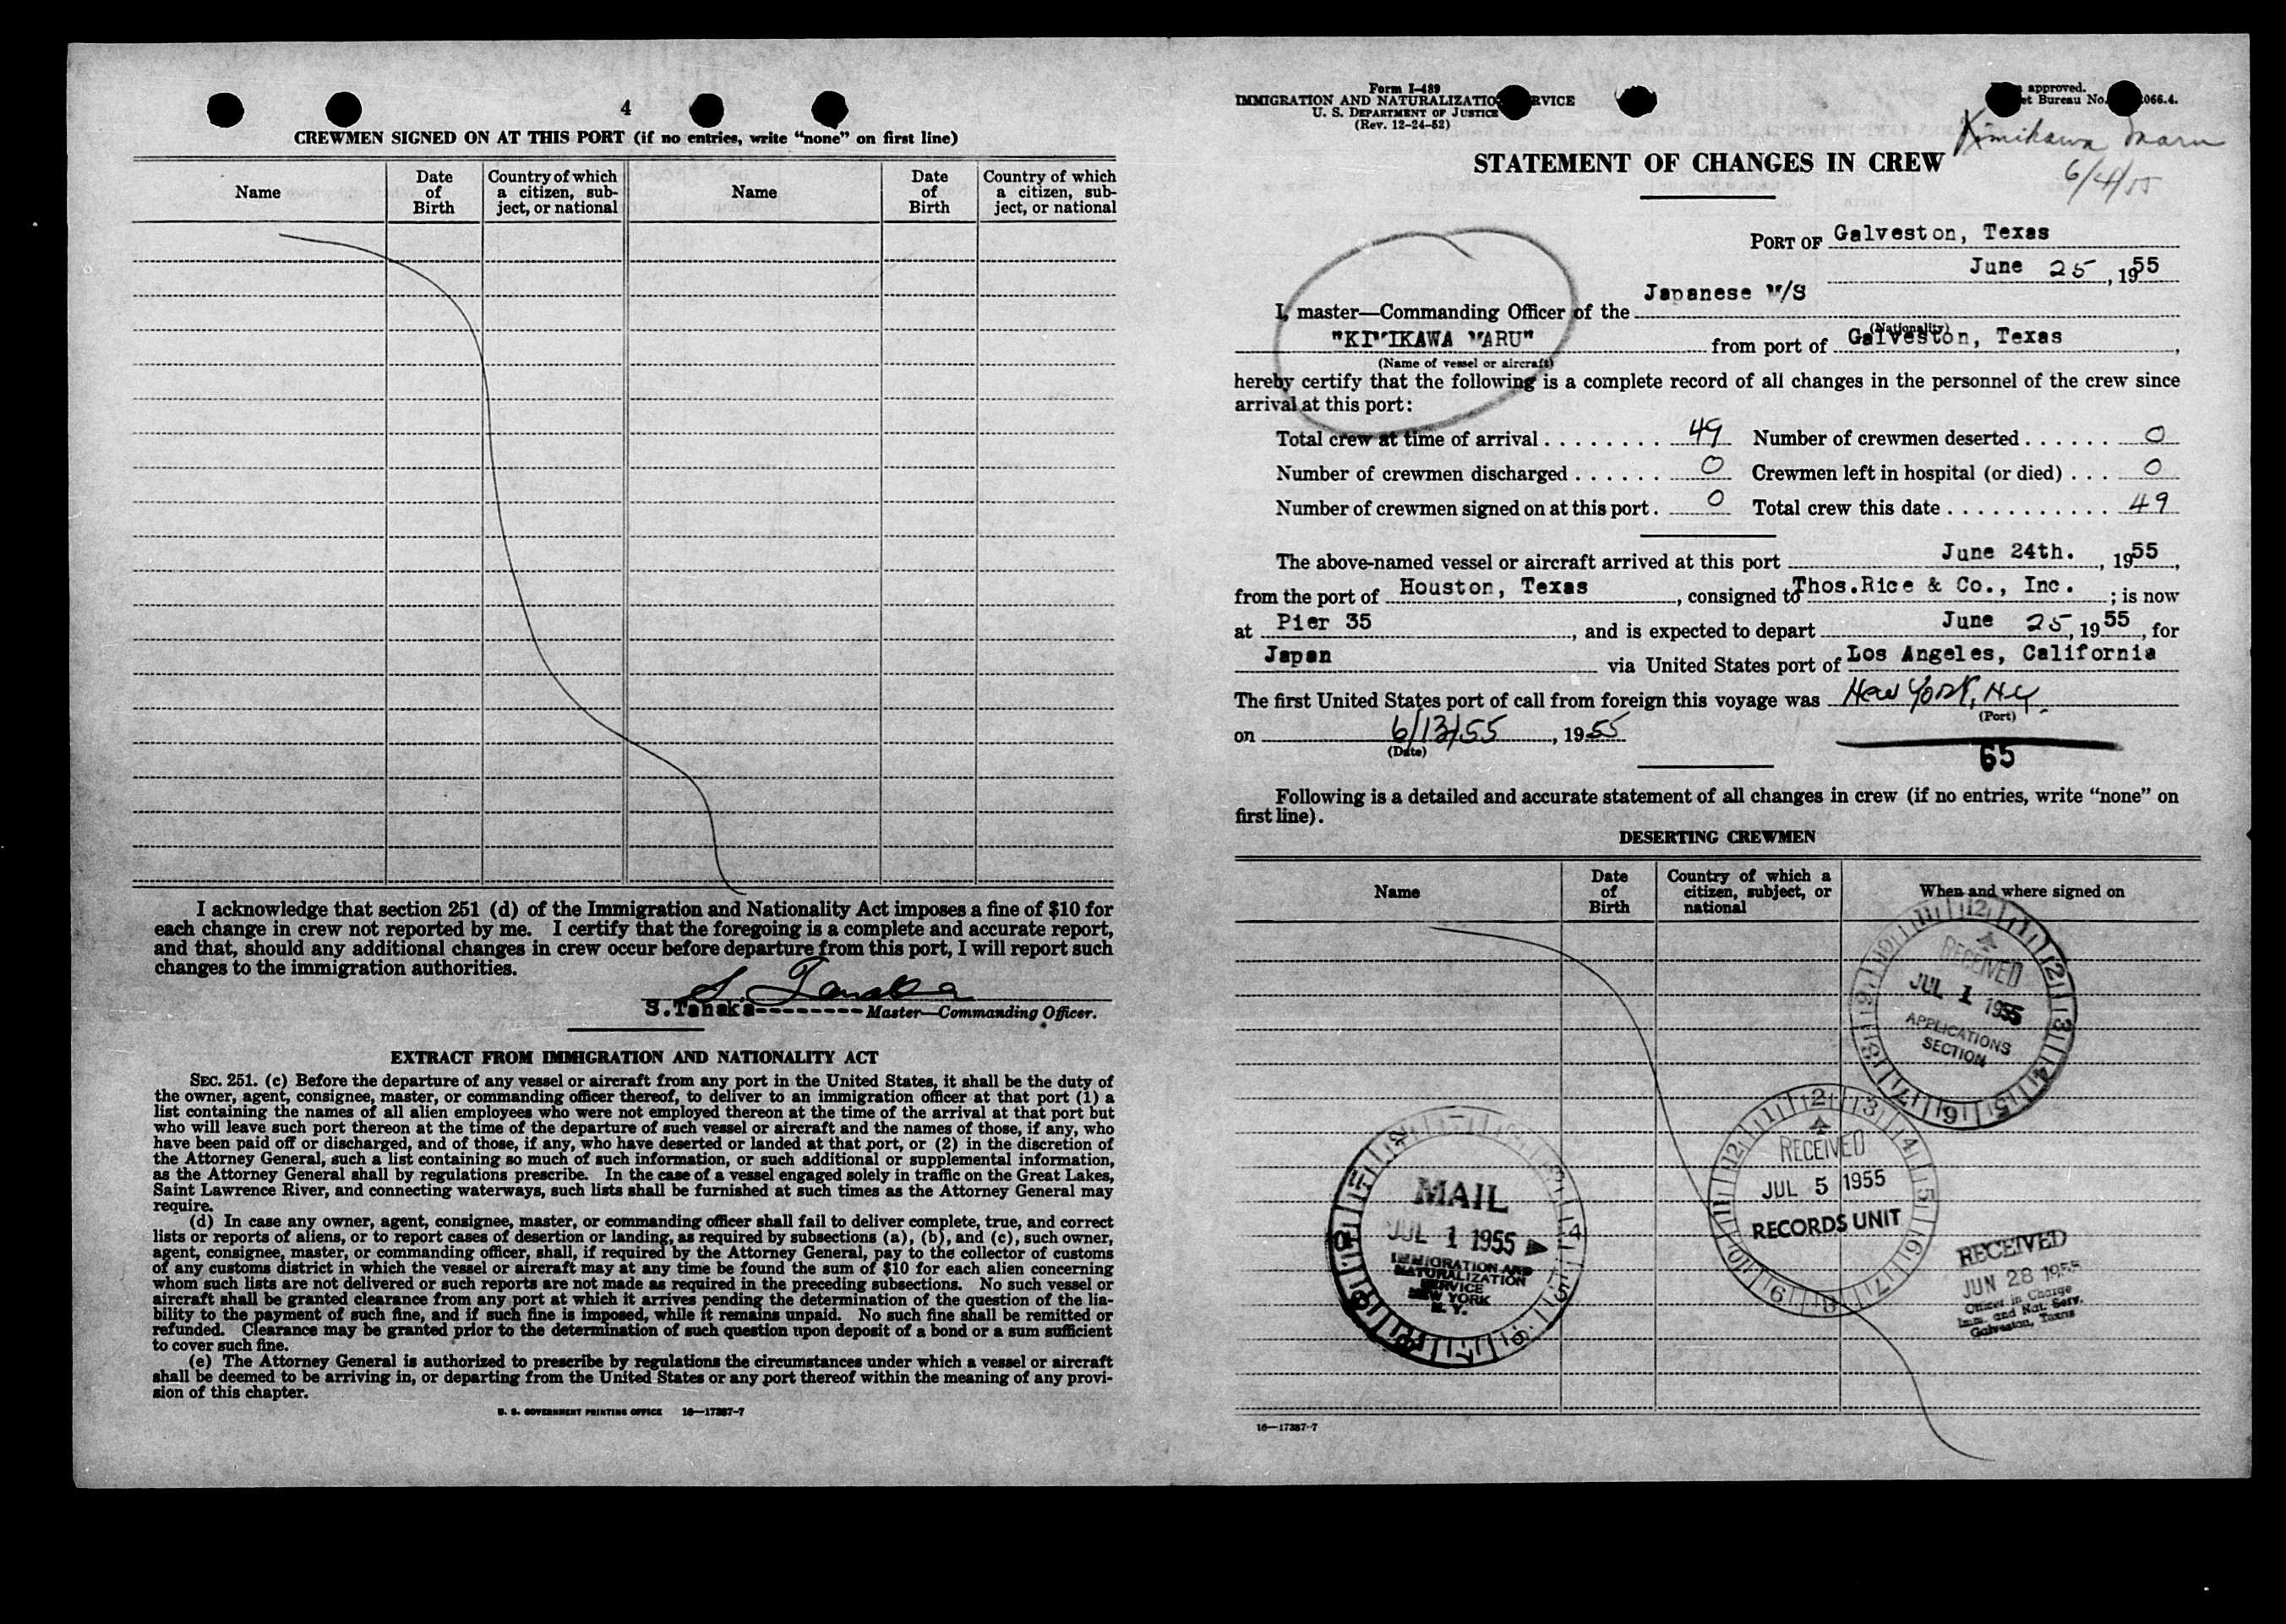 4
CREWMEN SIGNED ON AT THIS PORT (if no entries, write “none” on first line)
Name
Date of Birth
Country of which a citizen, subject, or national
Name
Date of Birth
Country of which a citizen, subject, or national
I acknowledge that section 251 (d) of the Immigration and Nationality Act imposes a fine of $10 for
each change in crew not reported by me. I certify that the foregoing is a complete and accurate report,
and that, should any additional changes in crew occur before departure from this port, I will report such
changes to the immigration authorities.
S. Tanaka
S.Tanaka-------- Master—Commanding Officer.
EXTRACT FROM IMMIGRATION AND NATIONALITY ACT
SEC. 251. (c) Before the departure of any vessel or aircraft from any port in the United States, it shall be the duty of
the owner, agent, consignee, master, or commanding officer thereof, to deliver to an immigration officer at that port (1) a
list containing the names of all alien employees who were not employed thereon at the time of the arrival at that port but
who will leave such port thereon at the time of the departure of such vessel or aircraft and the names of those, if any, who
have been paid off or discharged, and of those, if any, who have deserted or landed at that port, or (2) in the discretion of
the Attorney General, such a list containing so much of such information, or such additional or supplemental information,
as the Attorney General shall by regulations prescribe. In the case of a vessel engaged solely in traffic on the Great Lakes,
Saint Lawrence River, and connecting waterways, such lists shall be furnished at such times as the Attorney General may
require.
(d) In case any owner, agent, consignee, master, or commanding officer shall fail to deliver complete, true, and correct
lists or reports of aliens, or to report cases of desertion or landing, as required by subsections (a), (b), and (c), such owner,
agent, consignee, master, or commanding officer, shall, if required by the Attorney General, pay to the collector of customs
of any customs district in which the vessel or aircraft may at any time be found the sum of $10 for each alien concerning
whom such lists are not delivered or such reports are not made as required in the preceding subsections. No such vessel or
aircraft shall be granted clearance from any port at which it arrives pending the determination of the question of the lia-
bility to the payment of such fine, and if such fine is imposed, while it remains unpaid. No such fine shall be remitted or
refunded. Clearance may be granted prior to the determination of such question upon deposit of a bond or a sum sufficient
to cover such fine.
(e) The Attorney General is authorized to prescribe by regulations the circumstances under which a vessel or aircraft
shall be deemed to be arriving in, or departing from the United States or any port thereof within the meaning of any provi-
sion of this chapter.
U. S. GOVERNMENT PRINTING OFFICE 16—17387-7
Form I-489
IMMIGRATION AND NATURALIZATIO RVICE
U. S. DEPARTMENT OF JUSTICE
(Rev. 12-24-52)
approved.
et Bureau No. 066.4.
Kimikawa Maru
6/4/55
STATEMENT OF CHANGES IN CREW
PORT OF Galveston, Texas
June 25, 1955
Japanese M/S
I, master—Commanding Officer of the
(Nationality)
"KIMIKAWA MARU" from port of Galveston, Texas,
(Name of vessel or aircraft)
hereby certify that the following is a complete record of all changes in the personnel of the crew since
arrival at this port:
Total crew at time of arrival . . . . . . . . 49 Number of crewmen deserted . . . . . . 0
Number of crewmen discharged . . . . . . 0 Crewmen left in hospital (or died) . . . 0
Number of crewmen signed on at this port . 0 Total crew this date . . . . . . . . . . . 49
The above-named vessel or aircraft arrived at this port June 24th., 1955,
from the port of Houston, Texas, consigned to Thos.Rice & Co., Inc. ; is now
at Pier 35, and is expected to depart June 25, 1955, for
Japan via United States port of Los Angeles, California
The first United States port of call from foreign this voyage was New York, N.Y.
(Port)
on 6/13/55, 1955
(Date)
65
Following is a detailed and accurate statement of all changes in crew (if no entries, write “none” on
first line).
DESERTING CREWMEN
Name
Date of Birth
Country of which a citizen, subject, or national
When and where signed on
RECEIVED
JUL 1 1955
APPLICATIONS
SECTION
RECEIVED
JUL 5 1955
RECORDS UNIT
MAIL
JUL 1 1955
IMMIGRATION AND
NATURALIZATION
SERVICE
NEW YORK
N. Y.
RECEIVED
JUN 28 1955
Officer in Charge
Imm. and Nat. Serv.
Galveston, Texas
16—17387-7